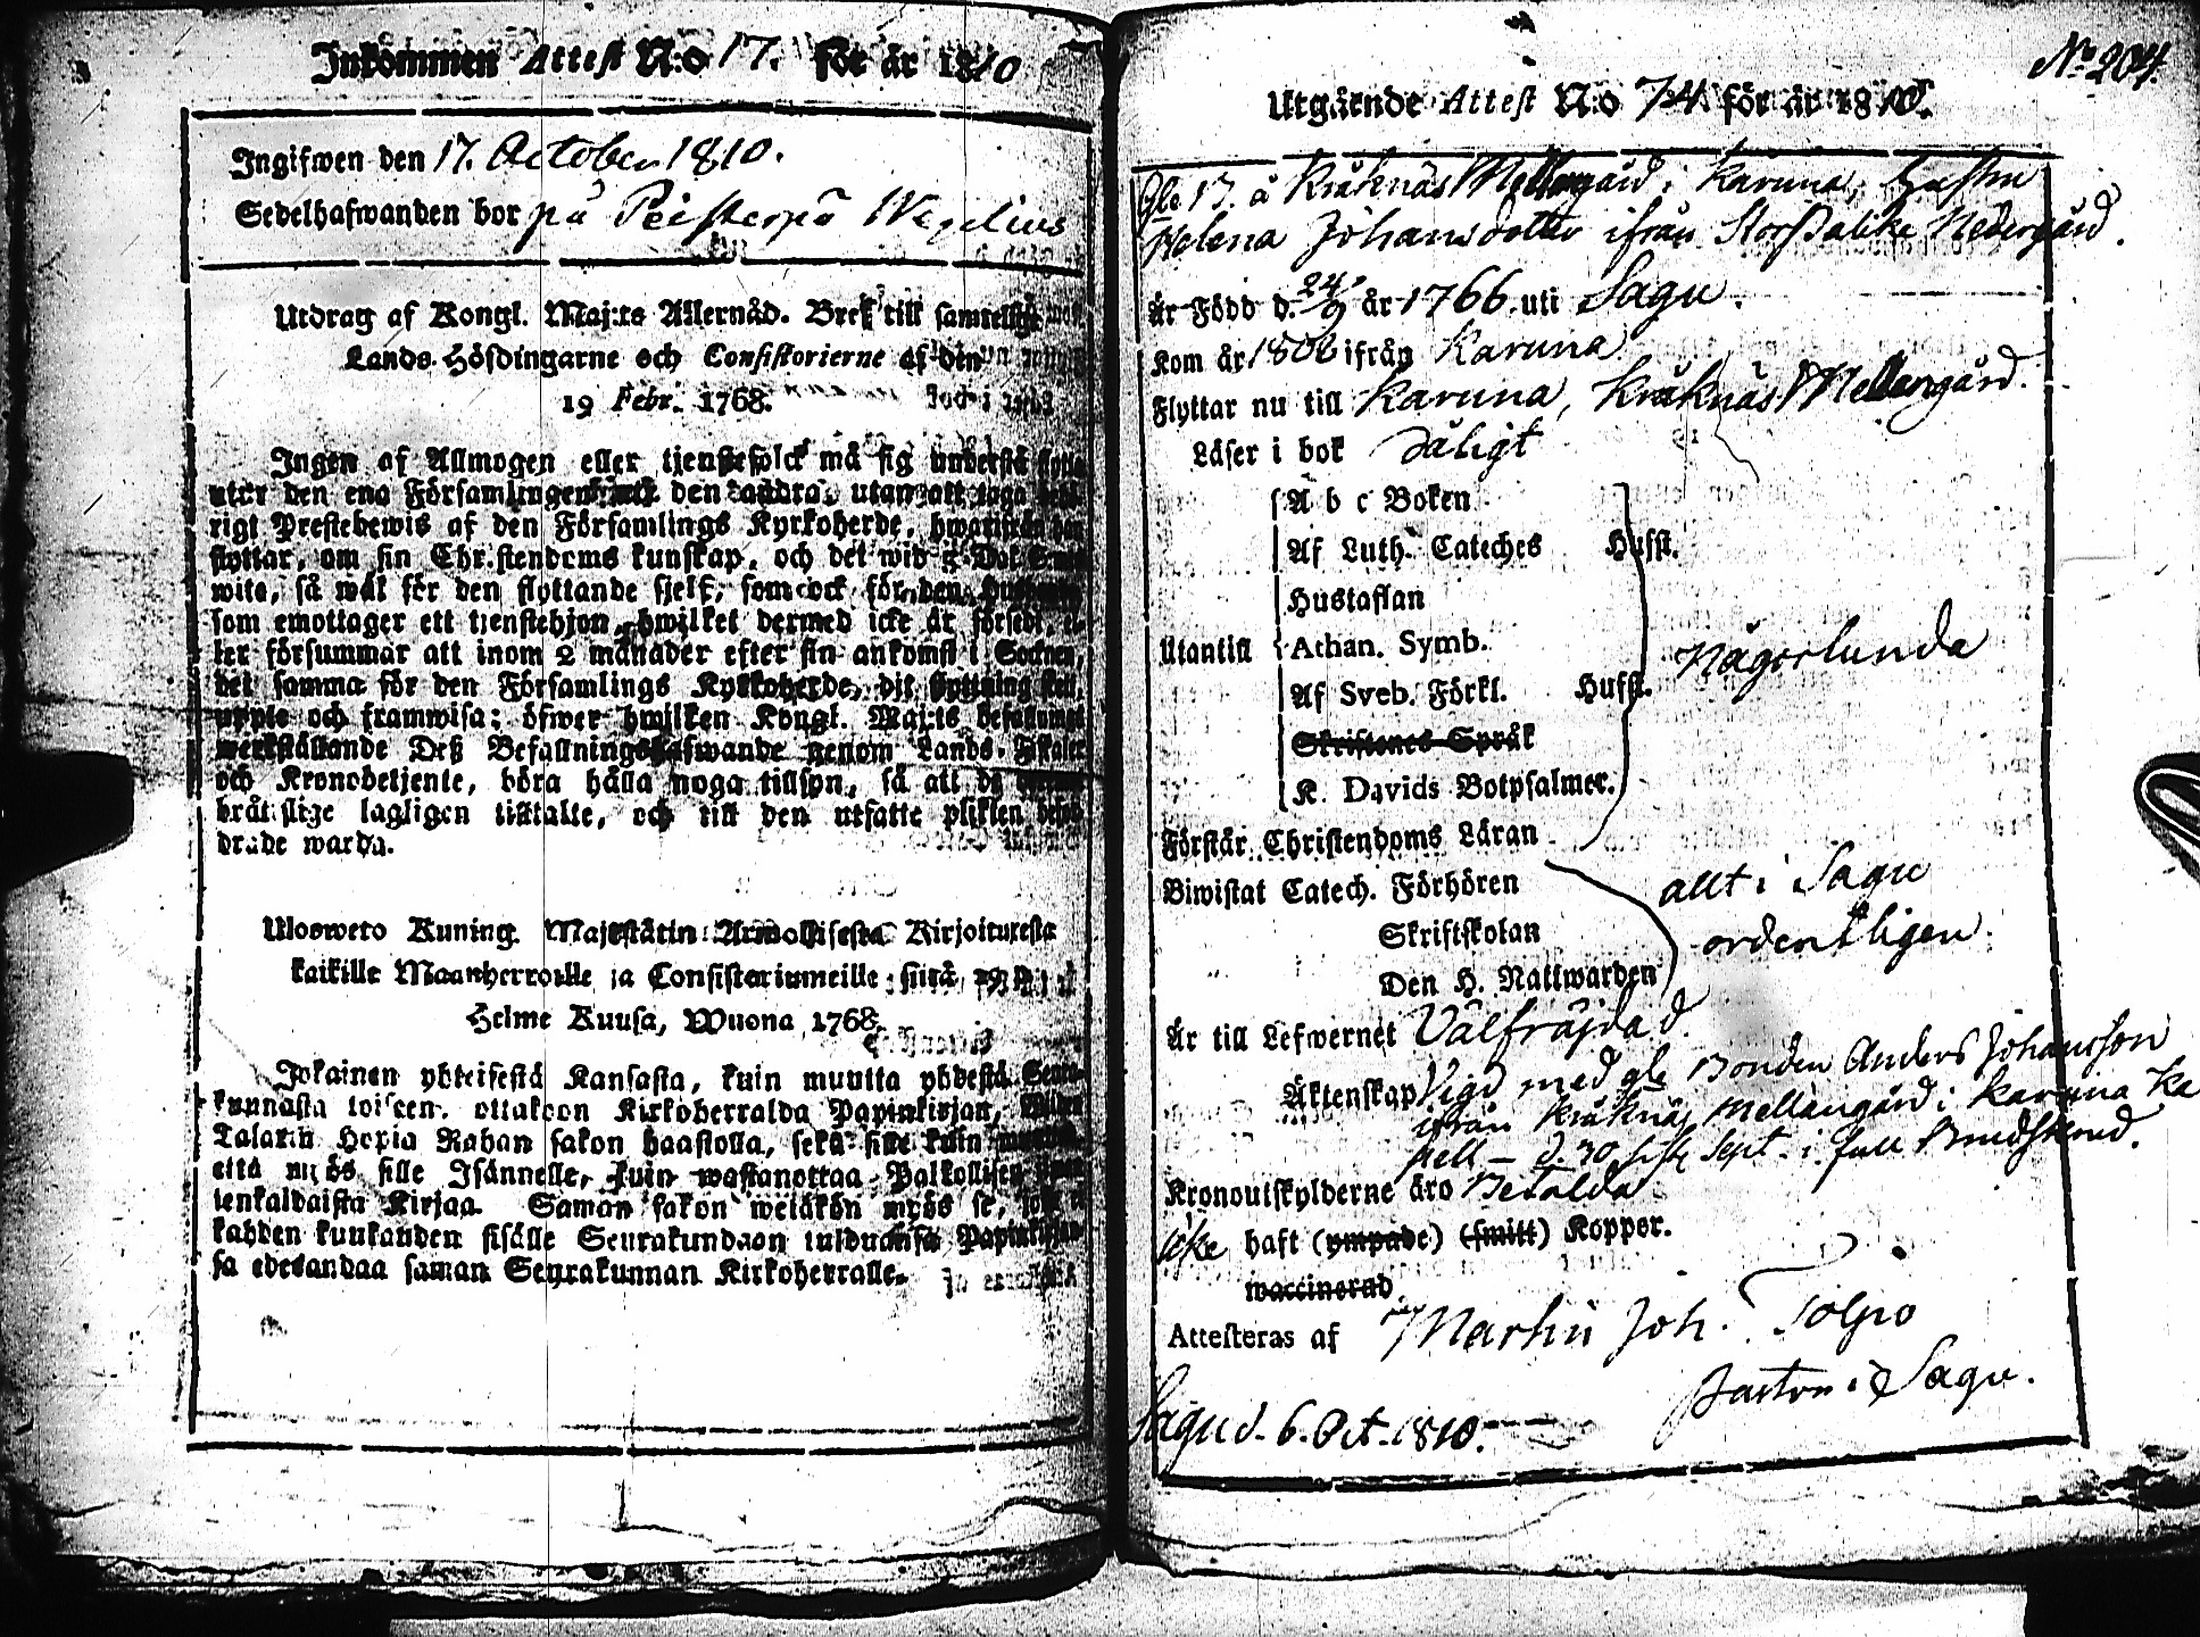 Inkommen Attest N:o 17. för år 1810
Ingifwen den 17. October 1810.
Sedelhafwanden bor på Peisterpä Wegelius
Utdrag af Kongl. Maj:ts Allernåd. Bref till samtelige
Lands-Höfdingarne och Consistorierne af den
19 Febr. 1768.
Ingen af Allmogen eller tjenstefolck må sig understå flytta
utur den ena Församlingen den andra, utan att taga behö-
rigt Prestebewis af den Församlings Kyrkoherde, hwarifrån han
flyttar, om sin Christendoms kunskap, och det wid
wite, så wäl för den flyttande sjelf, som ock för den
som emottager ett tjenstehjon, hwilket dermed icke är försedt, el-
ler försummar att inom 2 månader efter sin ankomst i Socknen,
det samma för den Församlings Kyrkoherde, dit flyttning skett,
uppte och framwisa; öfwer hwilken Kongl. Maj:ts befallnings
werkställande Deß Befallningshafwande genom Lands-Fiskaler
och Kronobetjente, böra hålla noga tillsyn, så att de
brätslige lagligen tilltalte, och till den utsatte plikten befor-
drade warda.
Ulosweto Kuning. Majestätin Armollisesta Kirjoituresta
kaikille Maanherroille ja Consistoriumeille siitä 19 p.
Helme Kuusa, Wuona 1768.
Jokainen yhteisestä Kansasta, kuin muutta yhdestä Seura-
kunnasta toiseen, ottakoon Kirkoherralda Papinkirjan,
Talarin Hopia Rahan sakon haastolla, sekä sille kuin
että myös sille Isännelle, kuin wastanottaa Palkollisen
lenkaldaista Kirjaa. Saman sakon wetäkön myös se, joka ei
kahden kuukauden sisälle Seurakundaan tulduansa Papinkirjaan-
sa edesandaa saman Seurakunnan Kirkoherralle.
No 204.
Utgående Attest N:o 74 för år 1810.
Gle B. å Kråknäs Mellangård i Karuna, hustru
Helena Johansdotter ifrån Stor Nedergård.
Är Född d. 24/9 år 1766 uti Sagu.
Kom år 1806 ifrån Karuna
Flyttar nu till Karuna, Kråknäs Mellangård.
Läser i bok dåligt
A b c Boken
Af Luth. Cateches Hufst.
Hustaflan
Utantill Athan. Symb. någorlunda
Af Sveb. Förkl. Hufst.
Skriftenes Språk
K. Davids Botpsalmer.
Förstår Christendoms Läran
Biwistat Catech. Förhören allt i Sagu
Skriftskolan ordentligen.
Den H. Nattwarden
Är till Lefwernet Välfräjdad.
Äktenskap Vigd med gle Bonden Anders Johansson
ifrån Kråknäs Mellangård i Karuna Ka
pell – d. 30 sistl. Sept. i full Brudskrud.
Kronoutskylderne äro Betalda
icke haft (ympade) (smitt) Koppor.
waccinerad
Attesteras af Martin Joh. Tolpo
Pastor i Sagu.
Sagu d. 6. Oct. 1810.